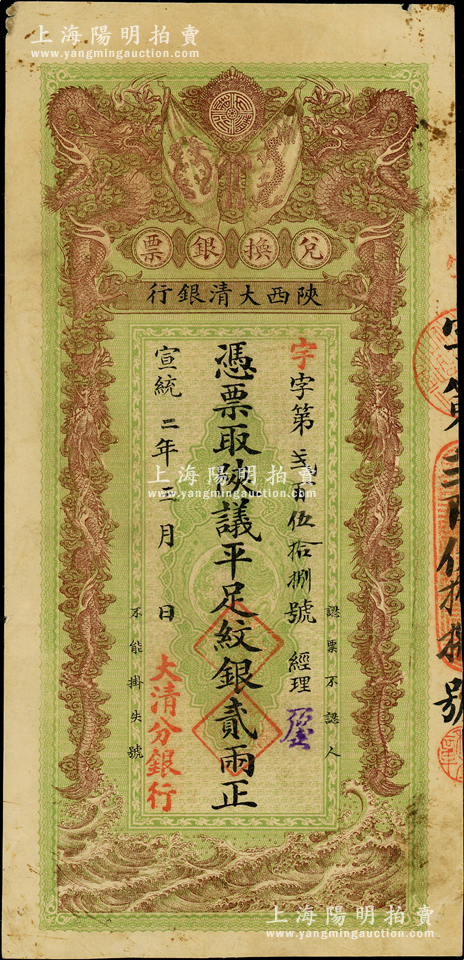 上海陽明拍賣
www.yangmingauction.com
兌換銀票
陝西大清銀行
宇字第貳百伍拾捌號 經理
認票不認人
憑票取陝議平足紋銀貳兩正
宣統二年二月 日
不能掛失號
大清分銀行
上海陽明拍賣
www.yangmingauction.com
上海陽明拍賣
www.yangmingauction.com